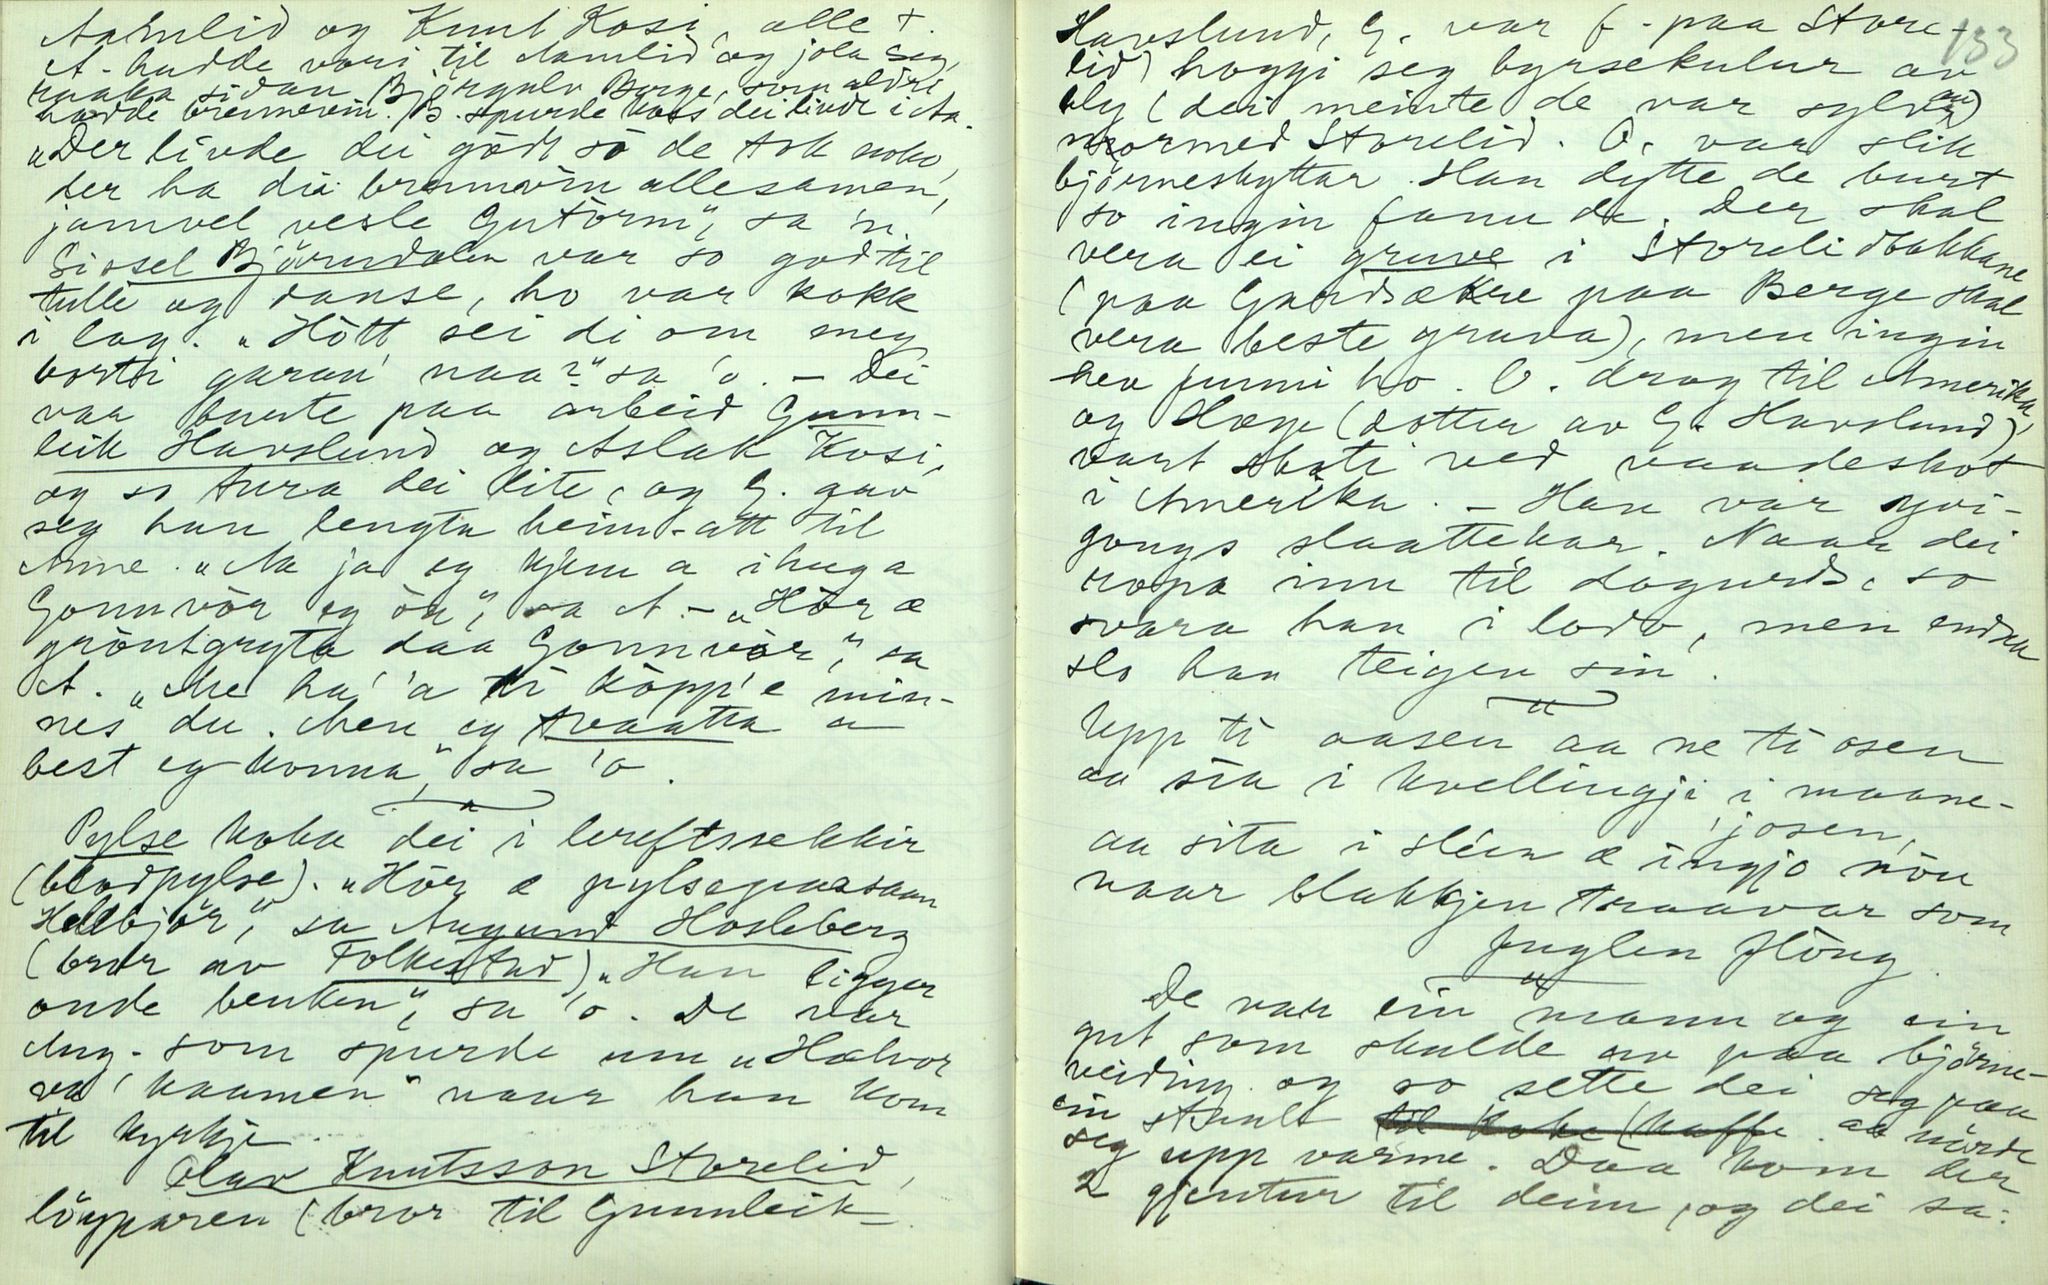 Aamlid og Knut Kosi, alle +.
A. hadde vori til Aamlid og jola seg,
raaka sidan Björgulv Berge, som aldri
hadde brennevin. B. spurde koss dei livde i Aa.
"Der livde dei gödt so de tok noko,
der ha dei brennevin allesamen,
jamvel vesle Gutorm", sa 'n.
Sissel Björndalen var so god til
tulle og danse, ho var kokk
i lag. "Hött sei di om meg
borti garan' naa?" sa 'o. — Dei
vaa burte paa arbeid Gunn-
leik Havslund og Aslak Kosi,
og so tura dei lite, og G. gav
seg han lengta heim-att til
Anne. "Aa ja eg kjem a ihuga
Gonnvör eg öu", sa A. — "Hör æ
gröntgryta daa Gonnvör", sa
A. "Me ha' 'a ti köpp'e min-
nes du. Men eg tvaatta a
best eg konna", sa 'o.
Pylse koka dei i lereftssekkir
(blodpylse). "Hör æ pylseposann
Hallbjör", sa Augund Hosleberg
(bror av Folkestad). "Han ligger
onde benken", sa 'o. De var
Aug. som spurde um "Halvor
va' kaamen" naar han kom
til kyrkje.
Olav Knutsson Storelid,
löypparen (bror til Gunnleik
133
Havslund, G. var f. paa Store-
lid) hoggji seg byrsekulur av
bly (dei meinte de var sylv
normed Storelid. O. var slik
björneskyttar. Han dytte de burt
so ingin fann de. Der skal
vera ei gruve i Storelidbakkane
(paa Gardsækre paa Berge skal
vera beste gruva), men ingin
hev funni ho. O. drog til Amerika,
og Hæge (dotter av G. Havslund)
vart skoti ved vaadeskot
i Amerika. — Han var
gongs slaattekar. Naar dei
ropa inn til dogurds, so
svara han i lodo, men endaa
slo han teigen sin.
Upp ti aasen aa ne ti osen
aa sia i kvellingji i maane-
josen,
aa sita i sléen æ ingjo nöu
naar blakkjen traavar som
fuglen flöug.
De var ein mann og ein
gut som skulde av paa björne-
veiding og so sette dei seg paa
ein stad til koke kaffe. aa nörde
seg upp varme. Daa kom der
2 gjentur til deim, og dei sa: